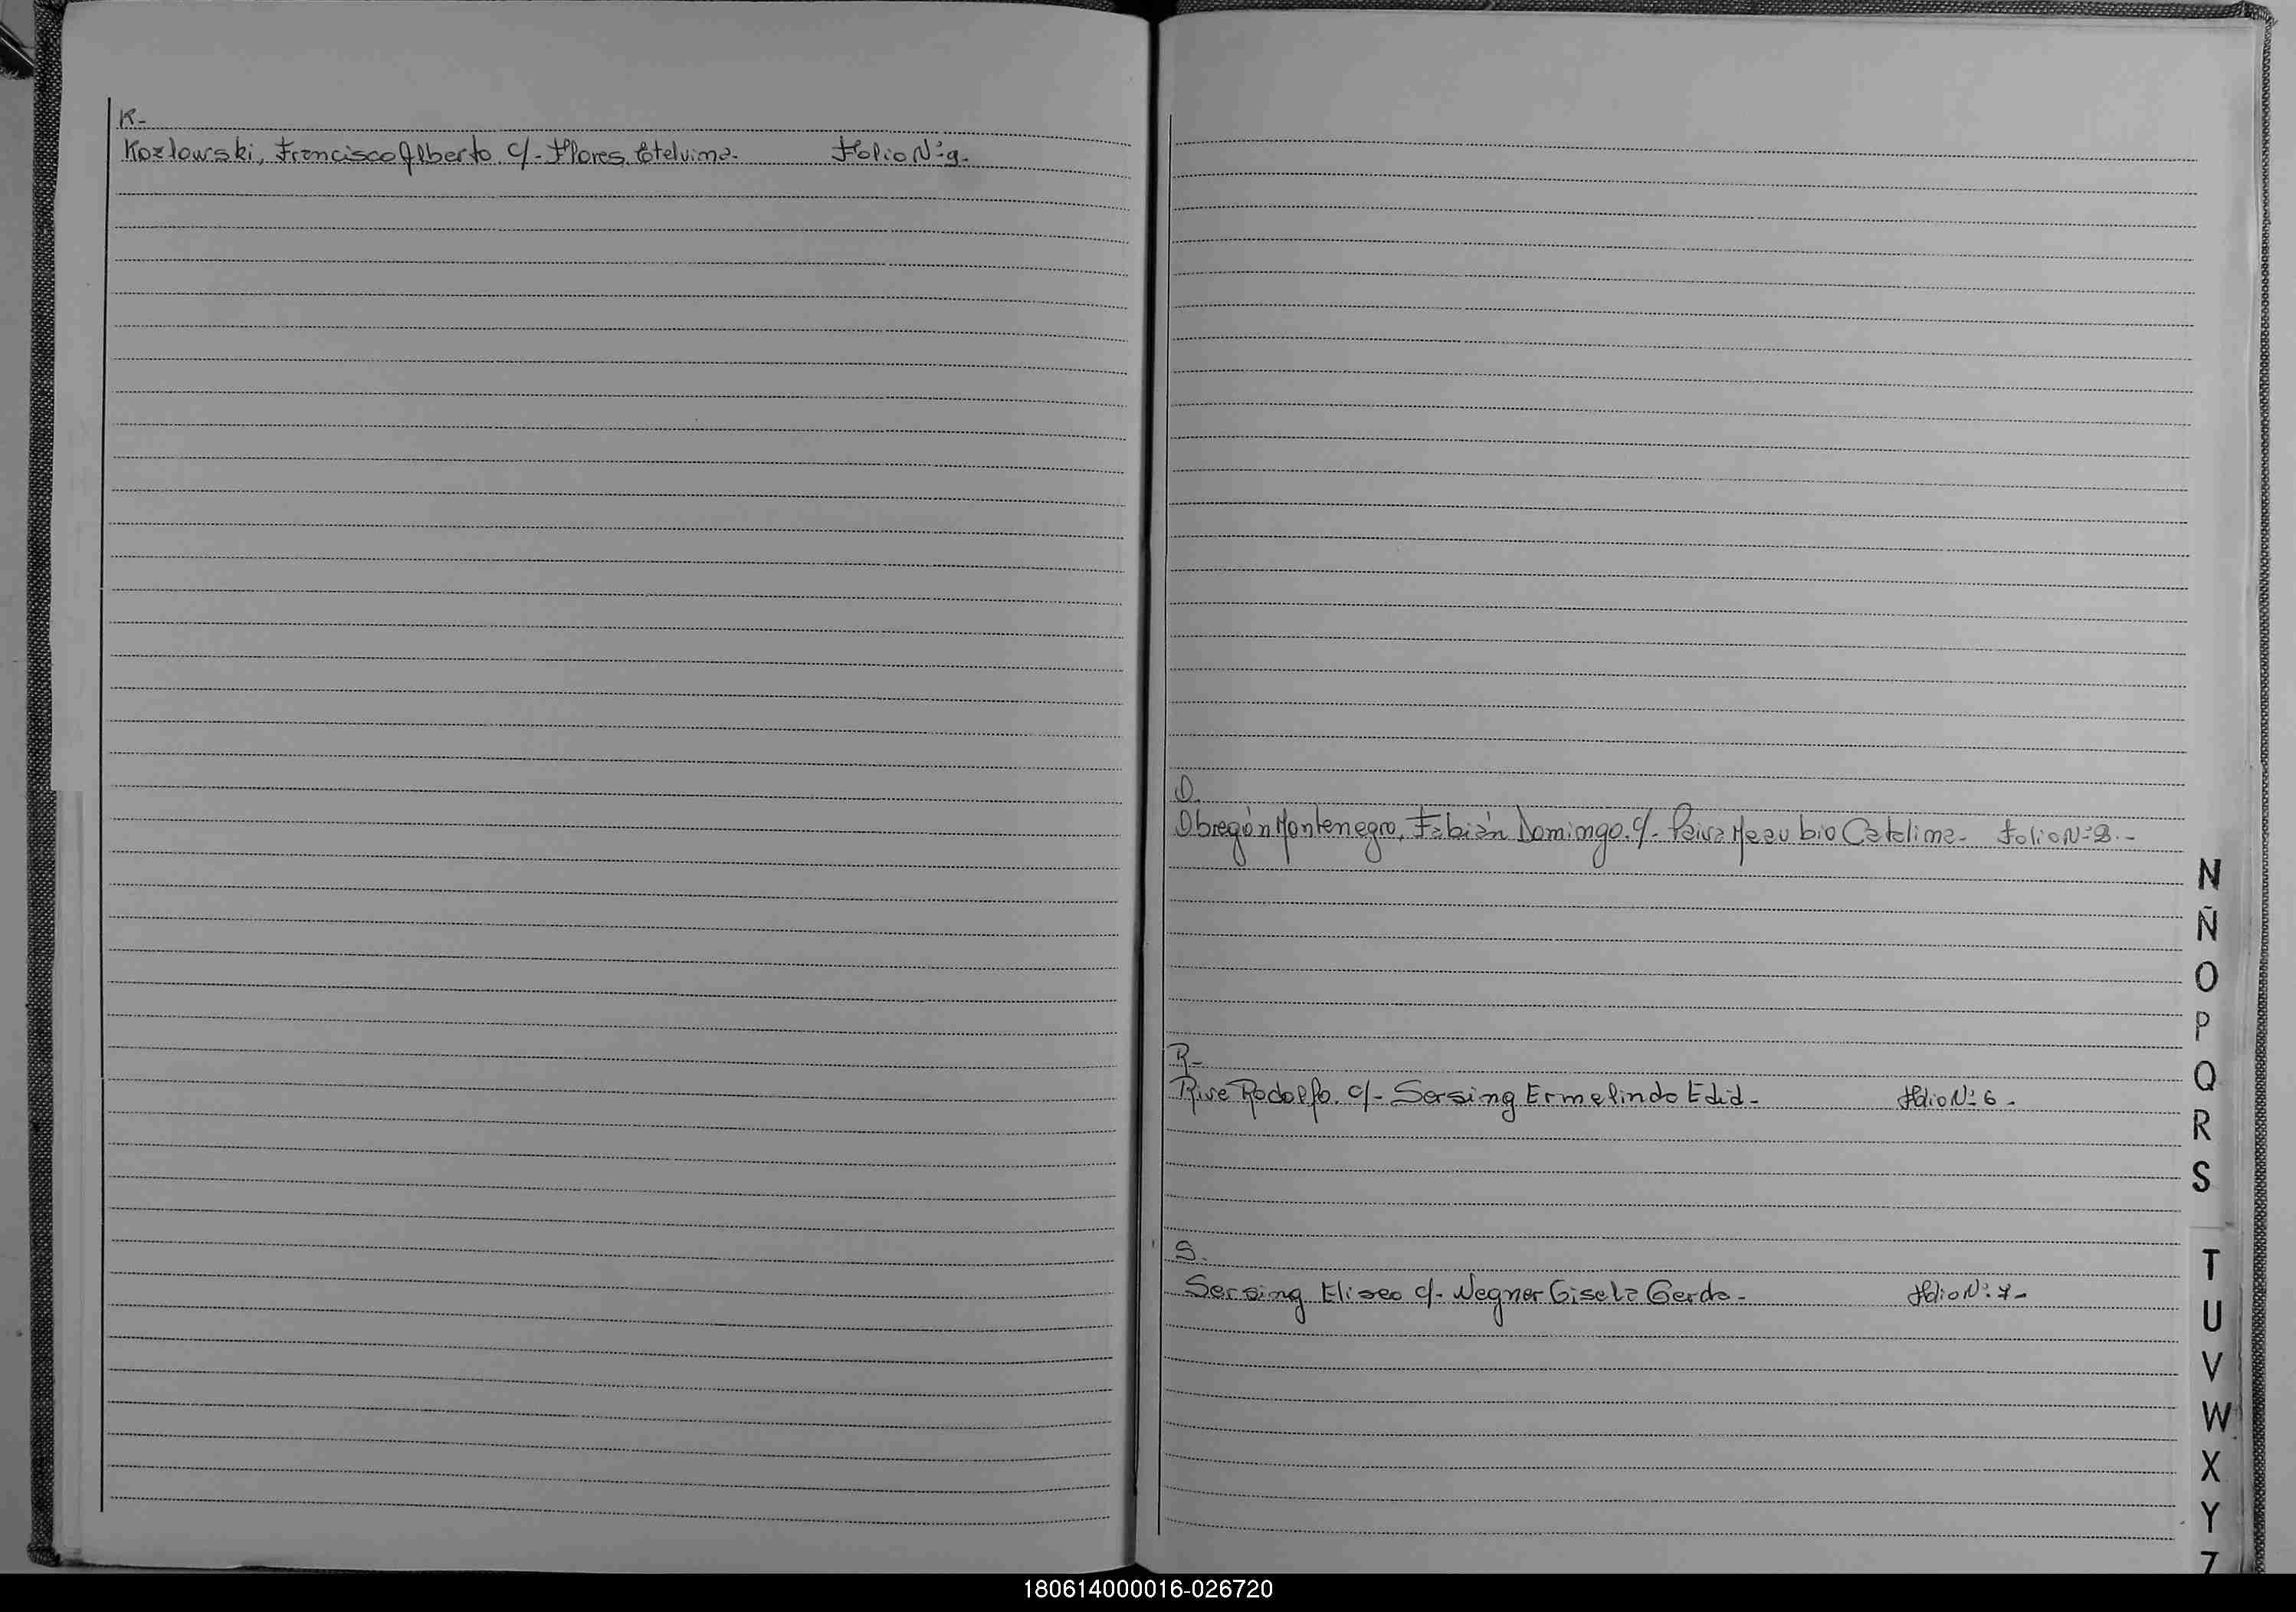 K-
Kozlowski, Francisco Alberto c/- Flores, Etelvina- Folio Nº 9-
O.
Obregón Montenegro, Fabián Domingo. c/- Paiva Catalina- Folio Nº 8.-
R-
Rive Rodolfo. c/- Sersing Ermelindo Edid- Folio Nº 6-
S.
Sersing Eliseo c/- Wegner Gisela Gerda- Folio Nº 7-
N
Ñ
O
P
Q
R
S
T
U
V
W
X
Y
Z
180614000016-026720